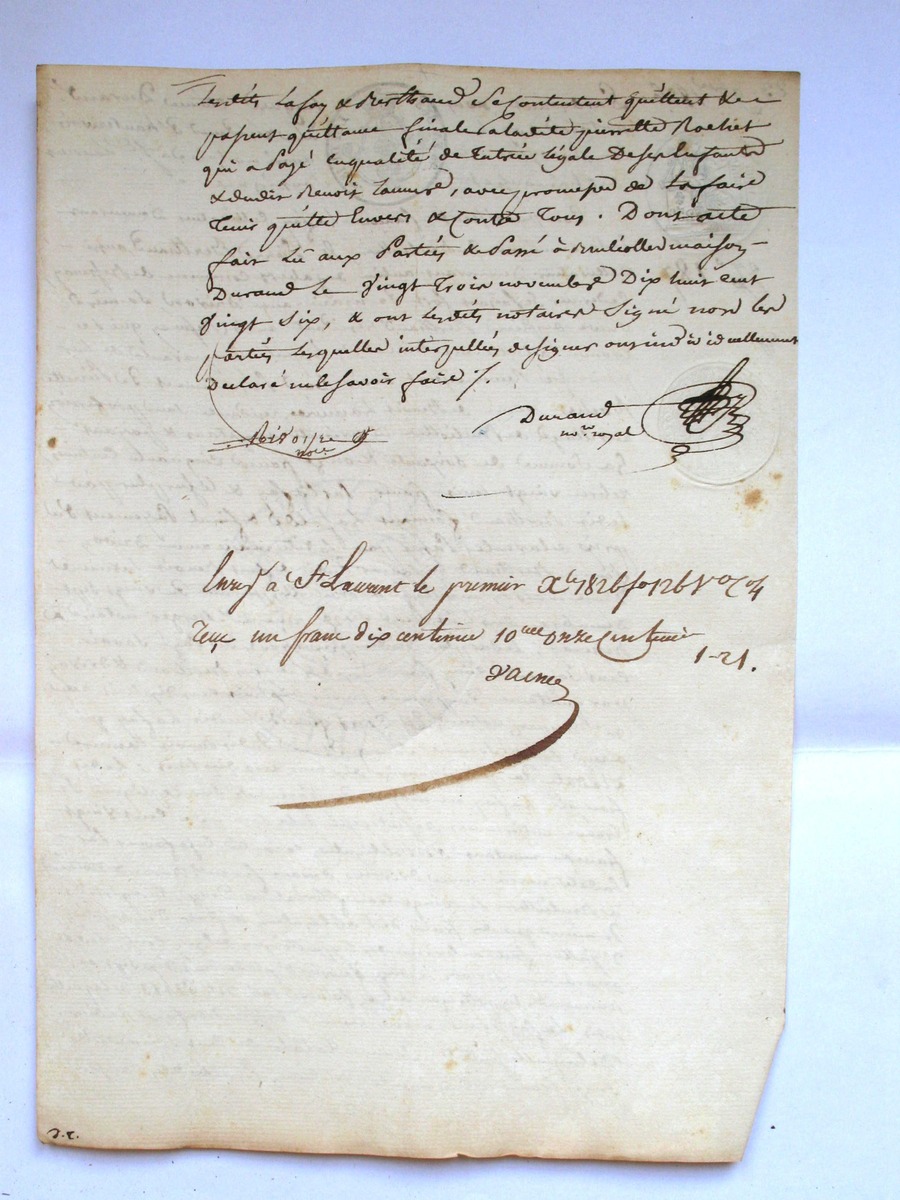 Lesdits Lafay & Berthaud se contentent quittent & 
passent quittance finale a ladite pierrette Rochet
qui a payé en qualité de tutrice légale de ses Enfants
& dudit Benoit, avec promesse de La faire
tenir quitte Envers & Contre Tous. Dont acte
fait Lu aux Parties & Passé à maison
Durand Le Vingt Trois novembre Dix huit cent
Vingt Six, & ont Lesdits notaires Signé non les
parties Lesquelles interpellées de signer ont individuellement
Declaré ne le savoir faire /.
Durand
nore royal
nore
Enregé à St Laurent le premier Xbre 1826 fo 126 Vo C 4
reçu un franc dix centimes 10me onze Centimes
1-21.